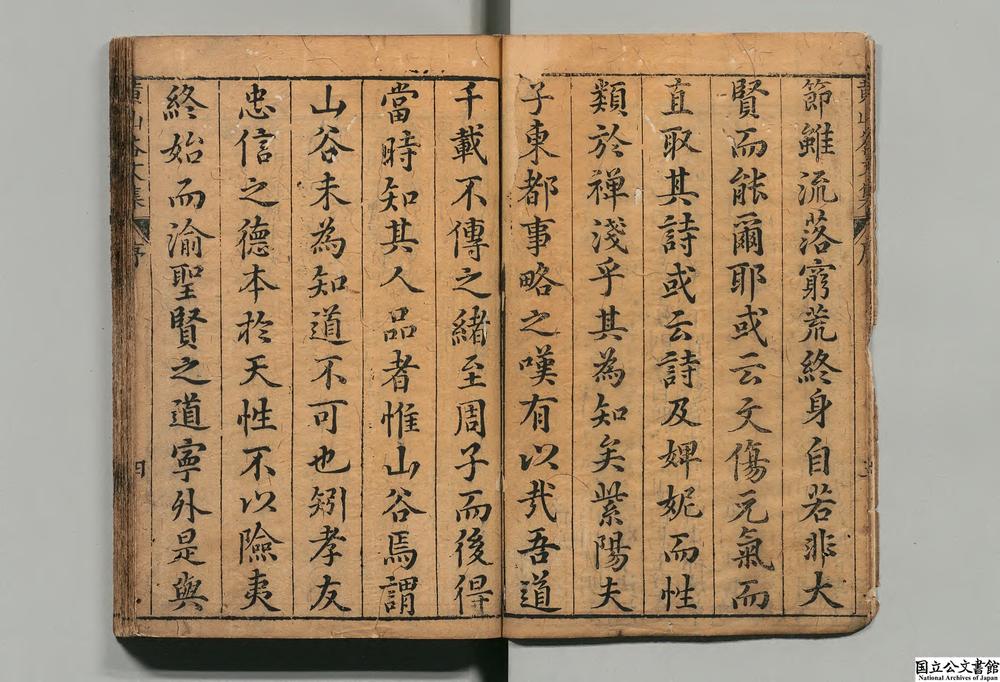 節雖流落窮荒終身自若非大
賢而能爾耶或云文傷元氣而
直取其詩或云詩及婢妮而性
類於禪淺乎其為知矣紫陽夫
子東都事略之嘆有以哉吾道
千載不傳之緒至周子而後得
當時知其人品者惟山谷焉謂
山谷未為知道不可也矧孝友
忠信之德本於天性不以險夷
終始而渝聖賢之道寧外是與
黃山谷文集 序 四
国立公文書館
National Archives of Japan